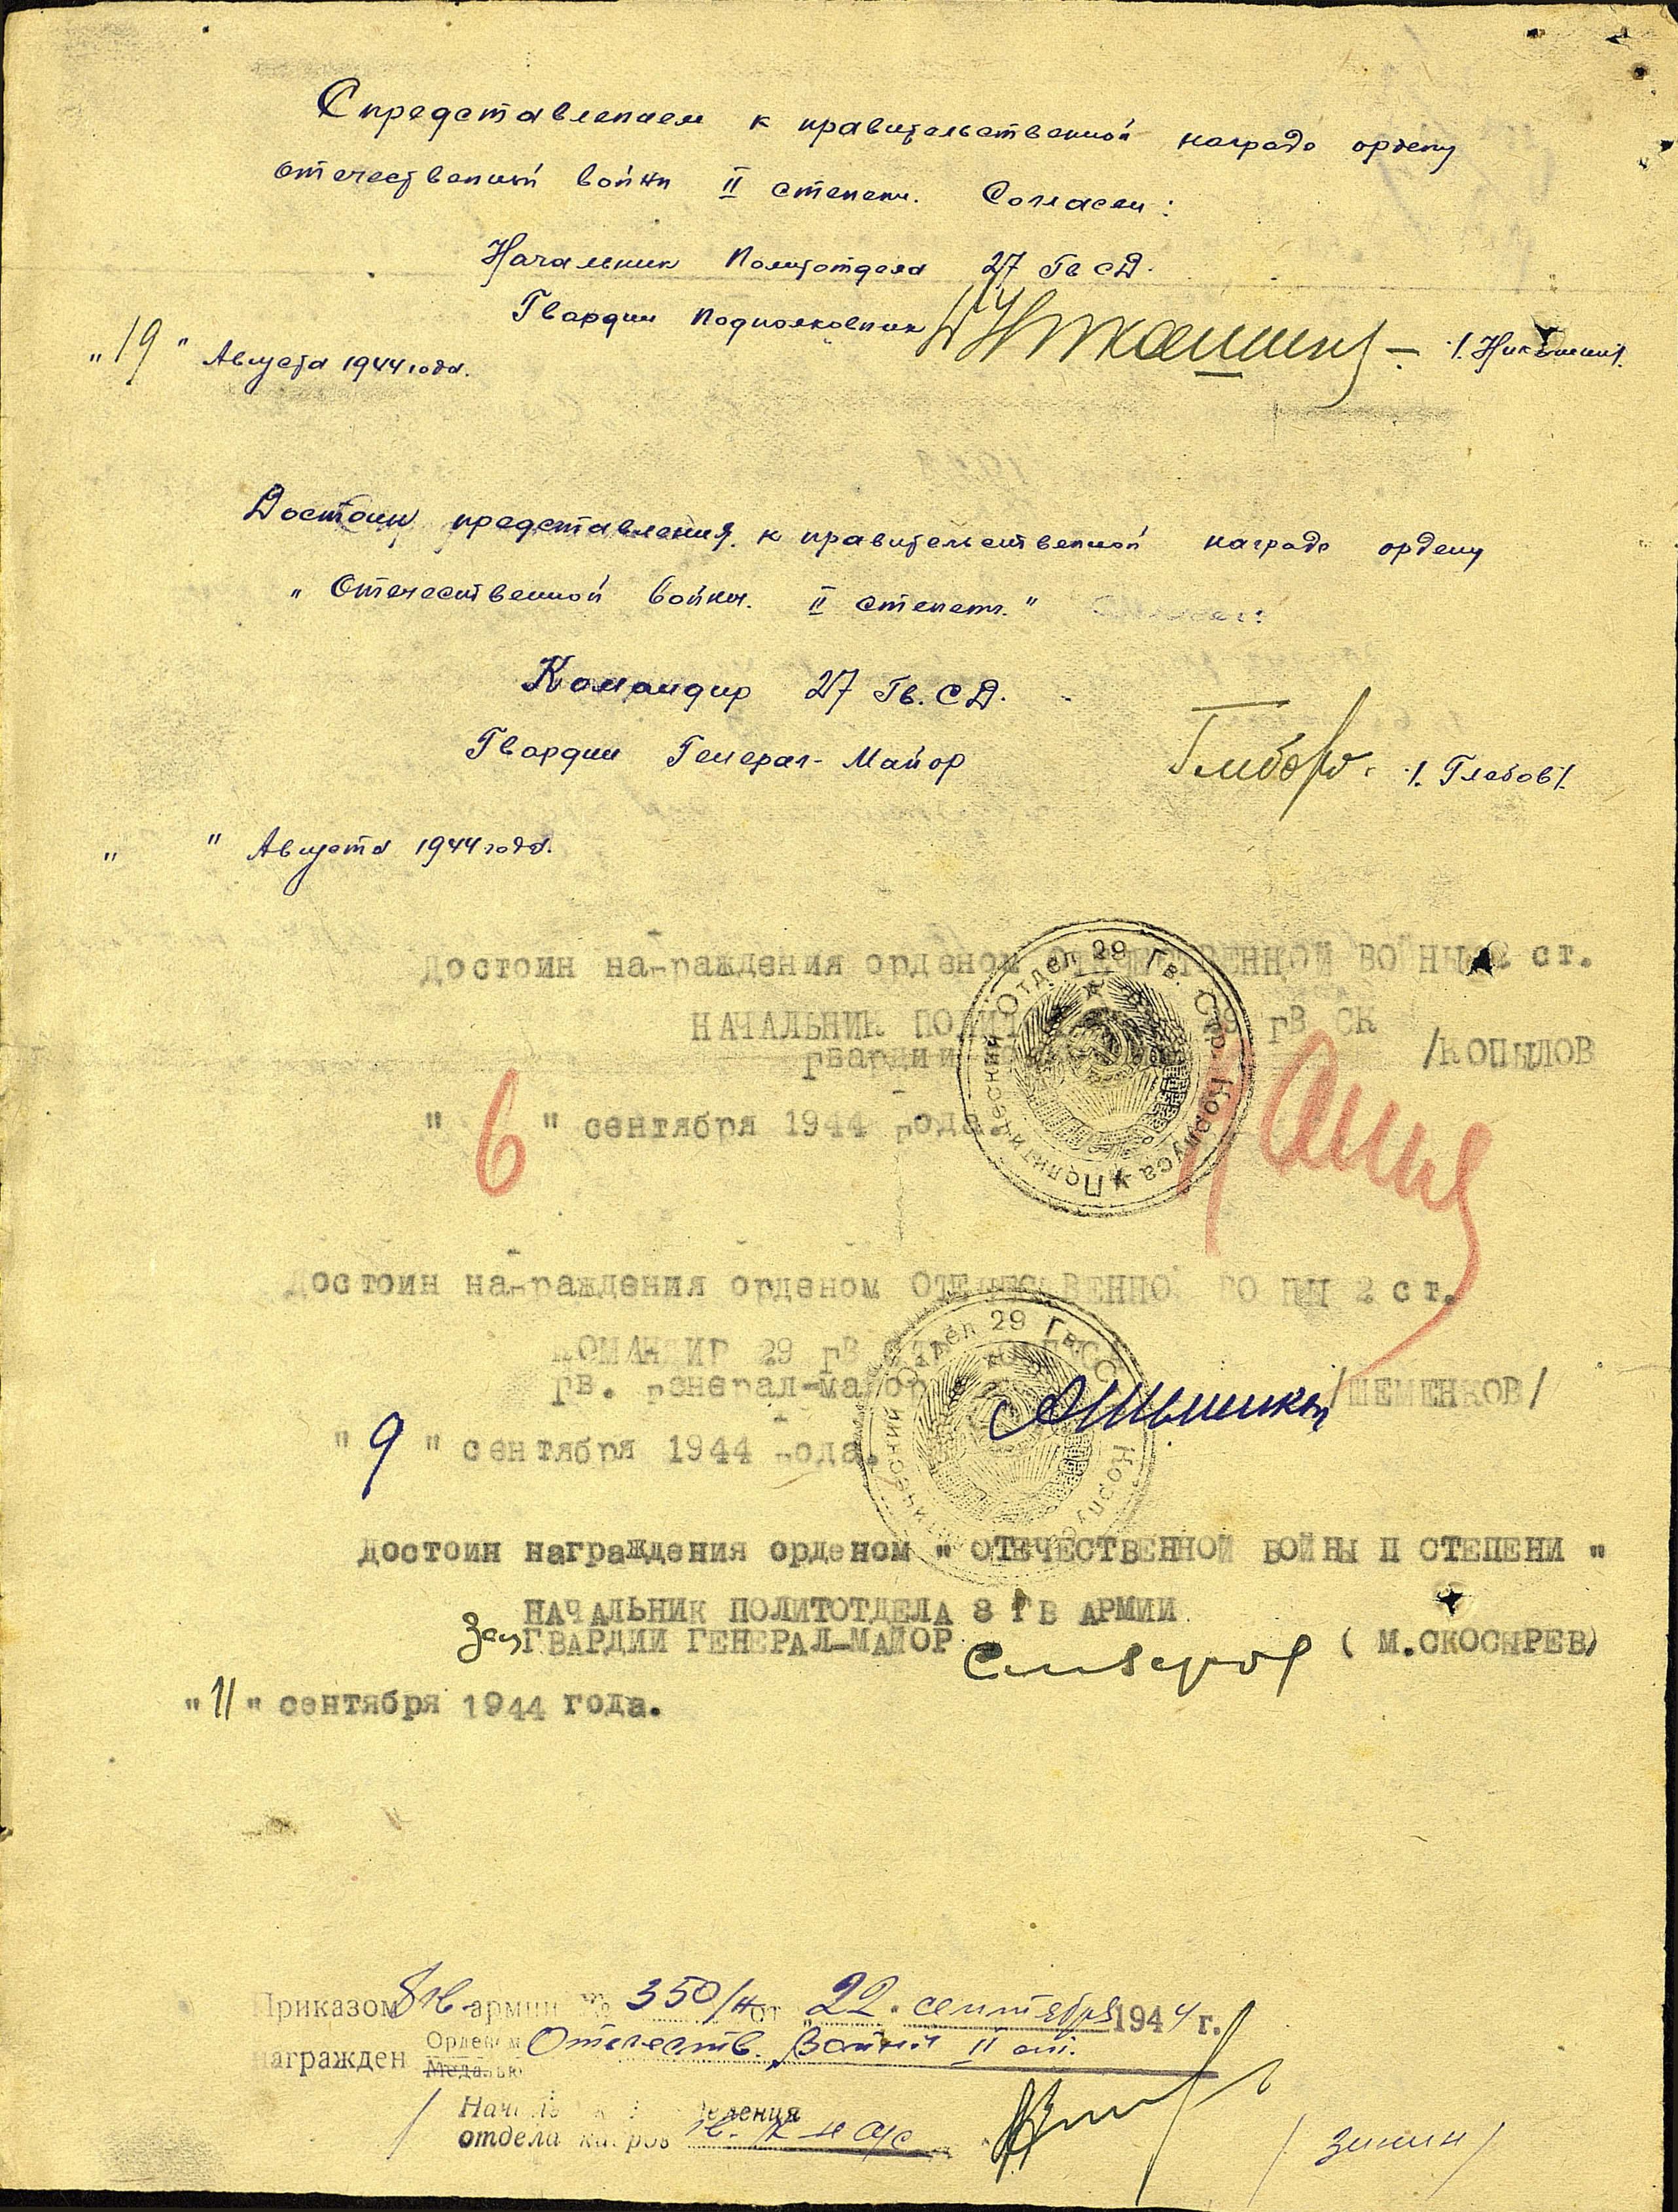 С представлением к правительственной награде ордену
отечественной войны II степени. Согласен:
Начальник Политотдела 27 Гв СД.
Гвардии Подполковник /. Никашин/.
"19" Августа 1944 года.
Достоин представления к правительственной награде ордену
" Отечественной войны. II степени."
Командир 27 Гв. СД.
Гвардии Генерал-Майор Глебов /. Глебов/.
" " Августа 1944 года.
Достоин награждения орденом ОТЕЧЕСТВЕННОЙ ВОЙНЫ 2 ст.
НАЧАЛЬНИК 29 ГВ СК
Гвардии /КОПЫЛОВ
"6" сентября 1944 года.
Политический Отдел 29 Гв. Стр. Корпуса
Достоин награждения орденом ОТЕЧЕСТВЕННОЙ ВОЙНЫ 2 ст.
КОМАНДИР 29 ГВ СТР КОРПУСА
Гв. генерал-майор /ШЕМЕНКОВ/
"9" сентября 1944 года.
Отдел 29 Гв. С Корпуса
Достоин награждения орденом " ОТЕЧЕСТВЕННОЙ ВОЙНЫ II СТЕПЕНИ "
НАЧАЛЬНИК ПОЛИТОТДЕЛА 8 ГВ АРМИИ
Зам ГВАРДИИ ГЕНЕРАЛ-МАЙОР ( М.СКОСЫРЕВ)
"11" сентября 1944 года.
Приказом 8 гв армии № 350/н от "22" сентября 1944 г.
награжден Орденом Отечеств. Войны II ст.
Медалью
отдела кадров
/ Зинин /